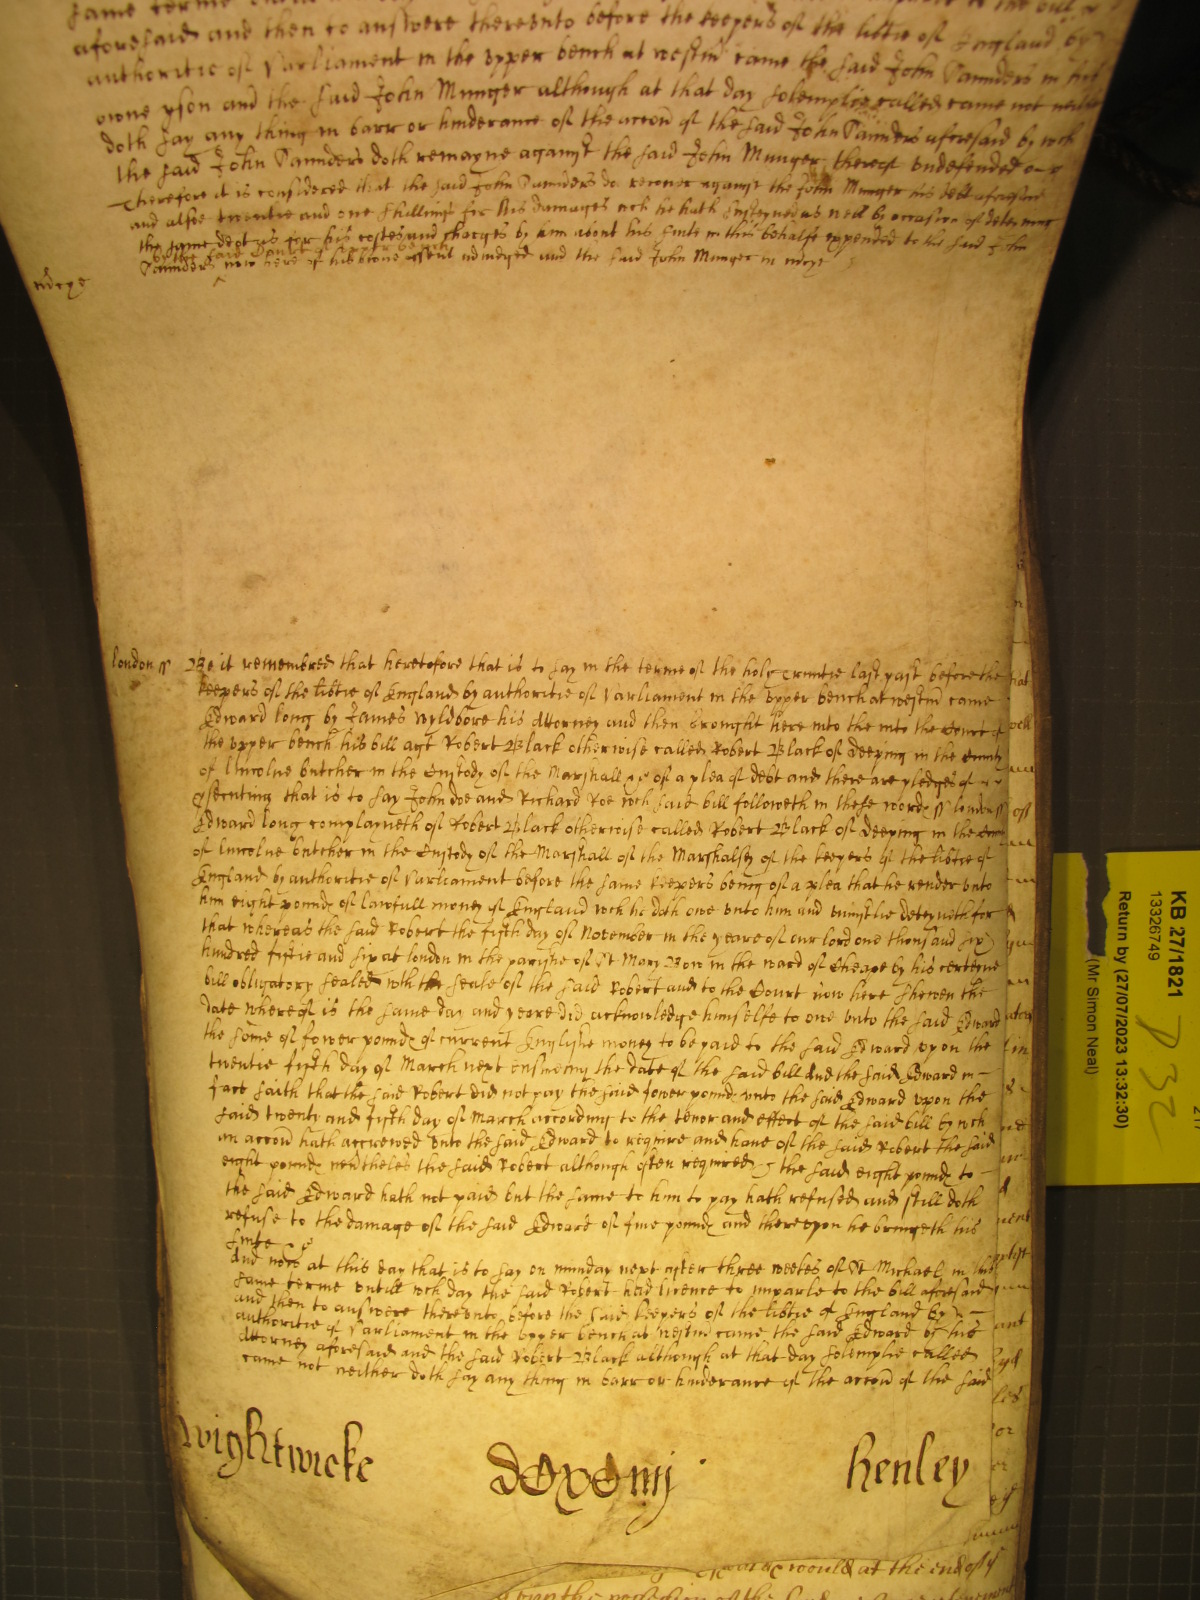 same terme
aforesaid and then to answere therevnto before the keepers of the libtie of England by
authoritie of Parliament in the vpper bench at westm came the said John Saunders in his
owne pson and the said John Munger although at that day solemplie called came not neither
doth say any thing in barr or hinderance of the accon of the said John Saunders aforesaid by wch
the said John Saunders doth remayne against the said John Munger thereof vndefended
Therefore it is considered that the said John Saunders do recover against the John Munger his debt aforesaid
and alsoe twentie and one shillings for his damages wch he hath susteyned as well by occasion of deteining
the same debt as for his costes and charges by him about his suite in this behalfe expended to the said John
by the said Court
Saunders now here of his owne assent adiudged and the said John Munger in mcye
mcye
london ss Be it remembred that heretofore that is to say in the terme of the holy Trinitie last past before the
keepers of the libtie of England by authoritie of Parliament in the vpper bench at westm came
Edward long by James Wyldbore his Attorney and then brought here into the into the Court of
the vpper bench his bill agt Robert Black otherwise called Robert Black of Deeping in the County
of Lincolne butcher in the Custody of the Marshall &c of a plea of debt and there are pledges of
psecuting that is to say John doe and Richard Roe wch said bill followeth in these words ss london ss
Edward long complayneth of Robert Black otherwise called Robert Black of Deeping in the County
of Lincolne butcher in the Custody of the Marshall of the Marshalsey of the keepers of the libtie of
England by authoritie of Parliament before the same keepers being of a plea that he render vnto
him eight pounds of lawfull money of England wch he doth owe vnto him and vniustlie deteyneth for
that whereas the said Robert the fifth day of November in the yeare of our lord one thousand six
hundred fiftie and six at london in the parishe of St Mary Bow in the ward of Cheape by his certeine
bill obligatory sealed wth the seale of the said Robert and to the Court now here shewen the
date whereof is the same day and yeare did acknowledge himselfe to owe vnto the said Edward
the some of fower pounds of current Englishe money to be paid to the said Edward vpon the
twentie fifth day of March next ensueing the date of the said bill And the said Edward in
fact saith that the said Robert did not pay the said fower pounds vnto the said Edward vpon the
said twenty and fifth day of March according to the tenor and effect of the said bill by wch
an accon hath accrewed vnto the said Edward to require and have of the said Robert the said
eight pounds nevtheles the said Robert although often required &c the said eight pounds to
the said Edward hath not paid but the same to him to pay hath refused and still doth
refuse to the damage of the said Edward of five pounds and therevpon he bringeth his
suite &c
And now at this day that is to say on munday next after three weekes of St Michael in this
same terme vntill wch day the said Robert had licence to imparle to the bill aforesaid
and then to answere therevnto before the said keepers of the libtie of England by
authoritie of Parliament in the vpper bench at westm came the said Edward by his
Attorney aforesaid and the said Robert Black although at that day solemplie called
came not neither doth say any thing in barr or hinderance of the accon of the said
Wightwicke
henley
would at the end of
KB 27/1821
13326749
Return by (27/07/2023 13:32:30)
(Mr Simon Neal)